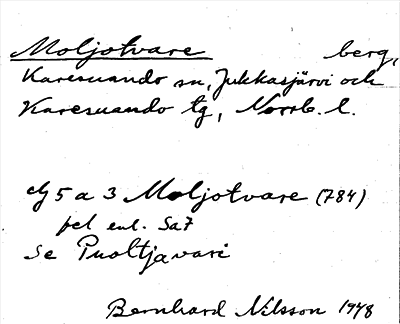 Moljotvare berg,
Karesuando sn, Jukkasjärvi och
Karesuando tg, Norrb. l.
dj 5 a 3 Moljotvare (784)
fel enl. Sa7
Se Puoltjavari
Bernhard Nilsson 1978